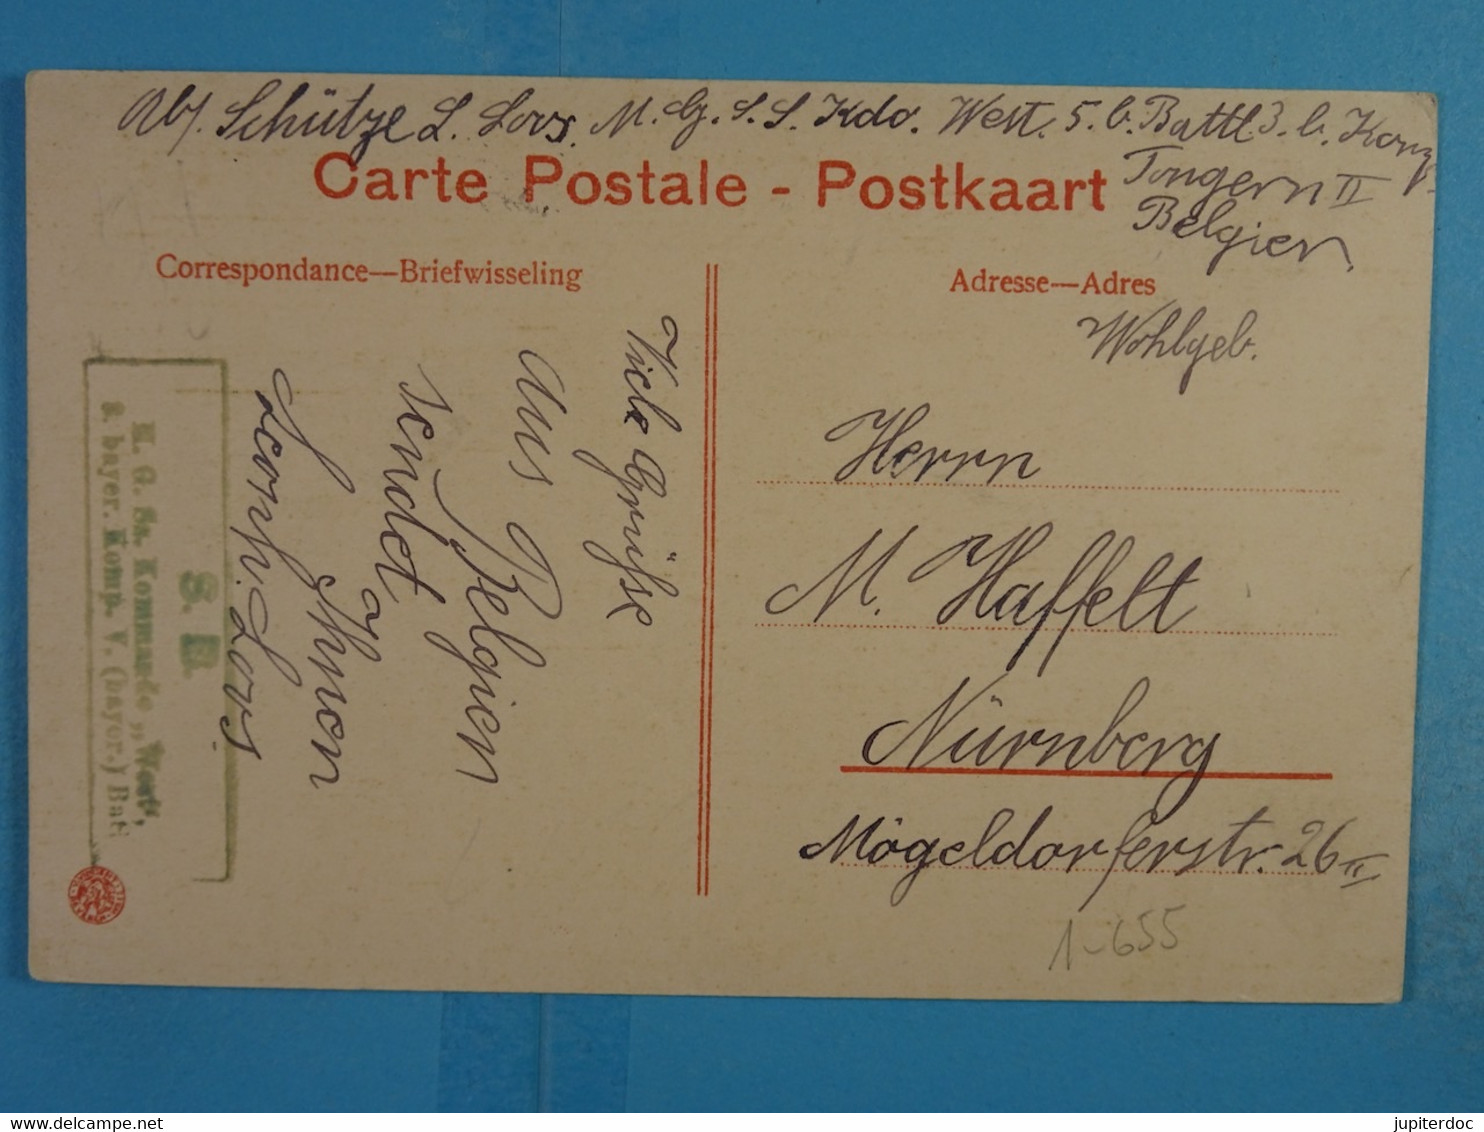 Abs. Schütze L. Lovs. M. G. S. S. Kdo. West. 5. b. Battl. 3. b. Komp.
Tongern II
Belgien
Carte Postale - Postkaart
Correspondance—Briefwisseling
Adresse—Adres
Viele Grüße
Aus Belgien
sendet
Ihnen
Leonh. Lovs.
S. B.
M. G. Ss. Kommando „West",
3. bayer. Komp. V. (bayer.) Batl
Wohlgeb.
Herrn
M. Haffelt
Nürnberg
Mögeldorferstr. 26 II
1-655
jupiterdoc